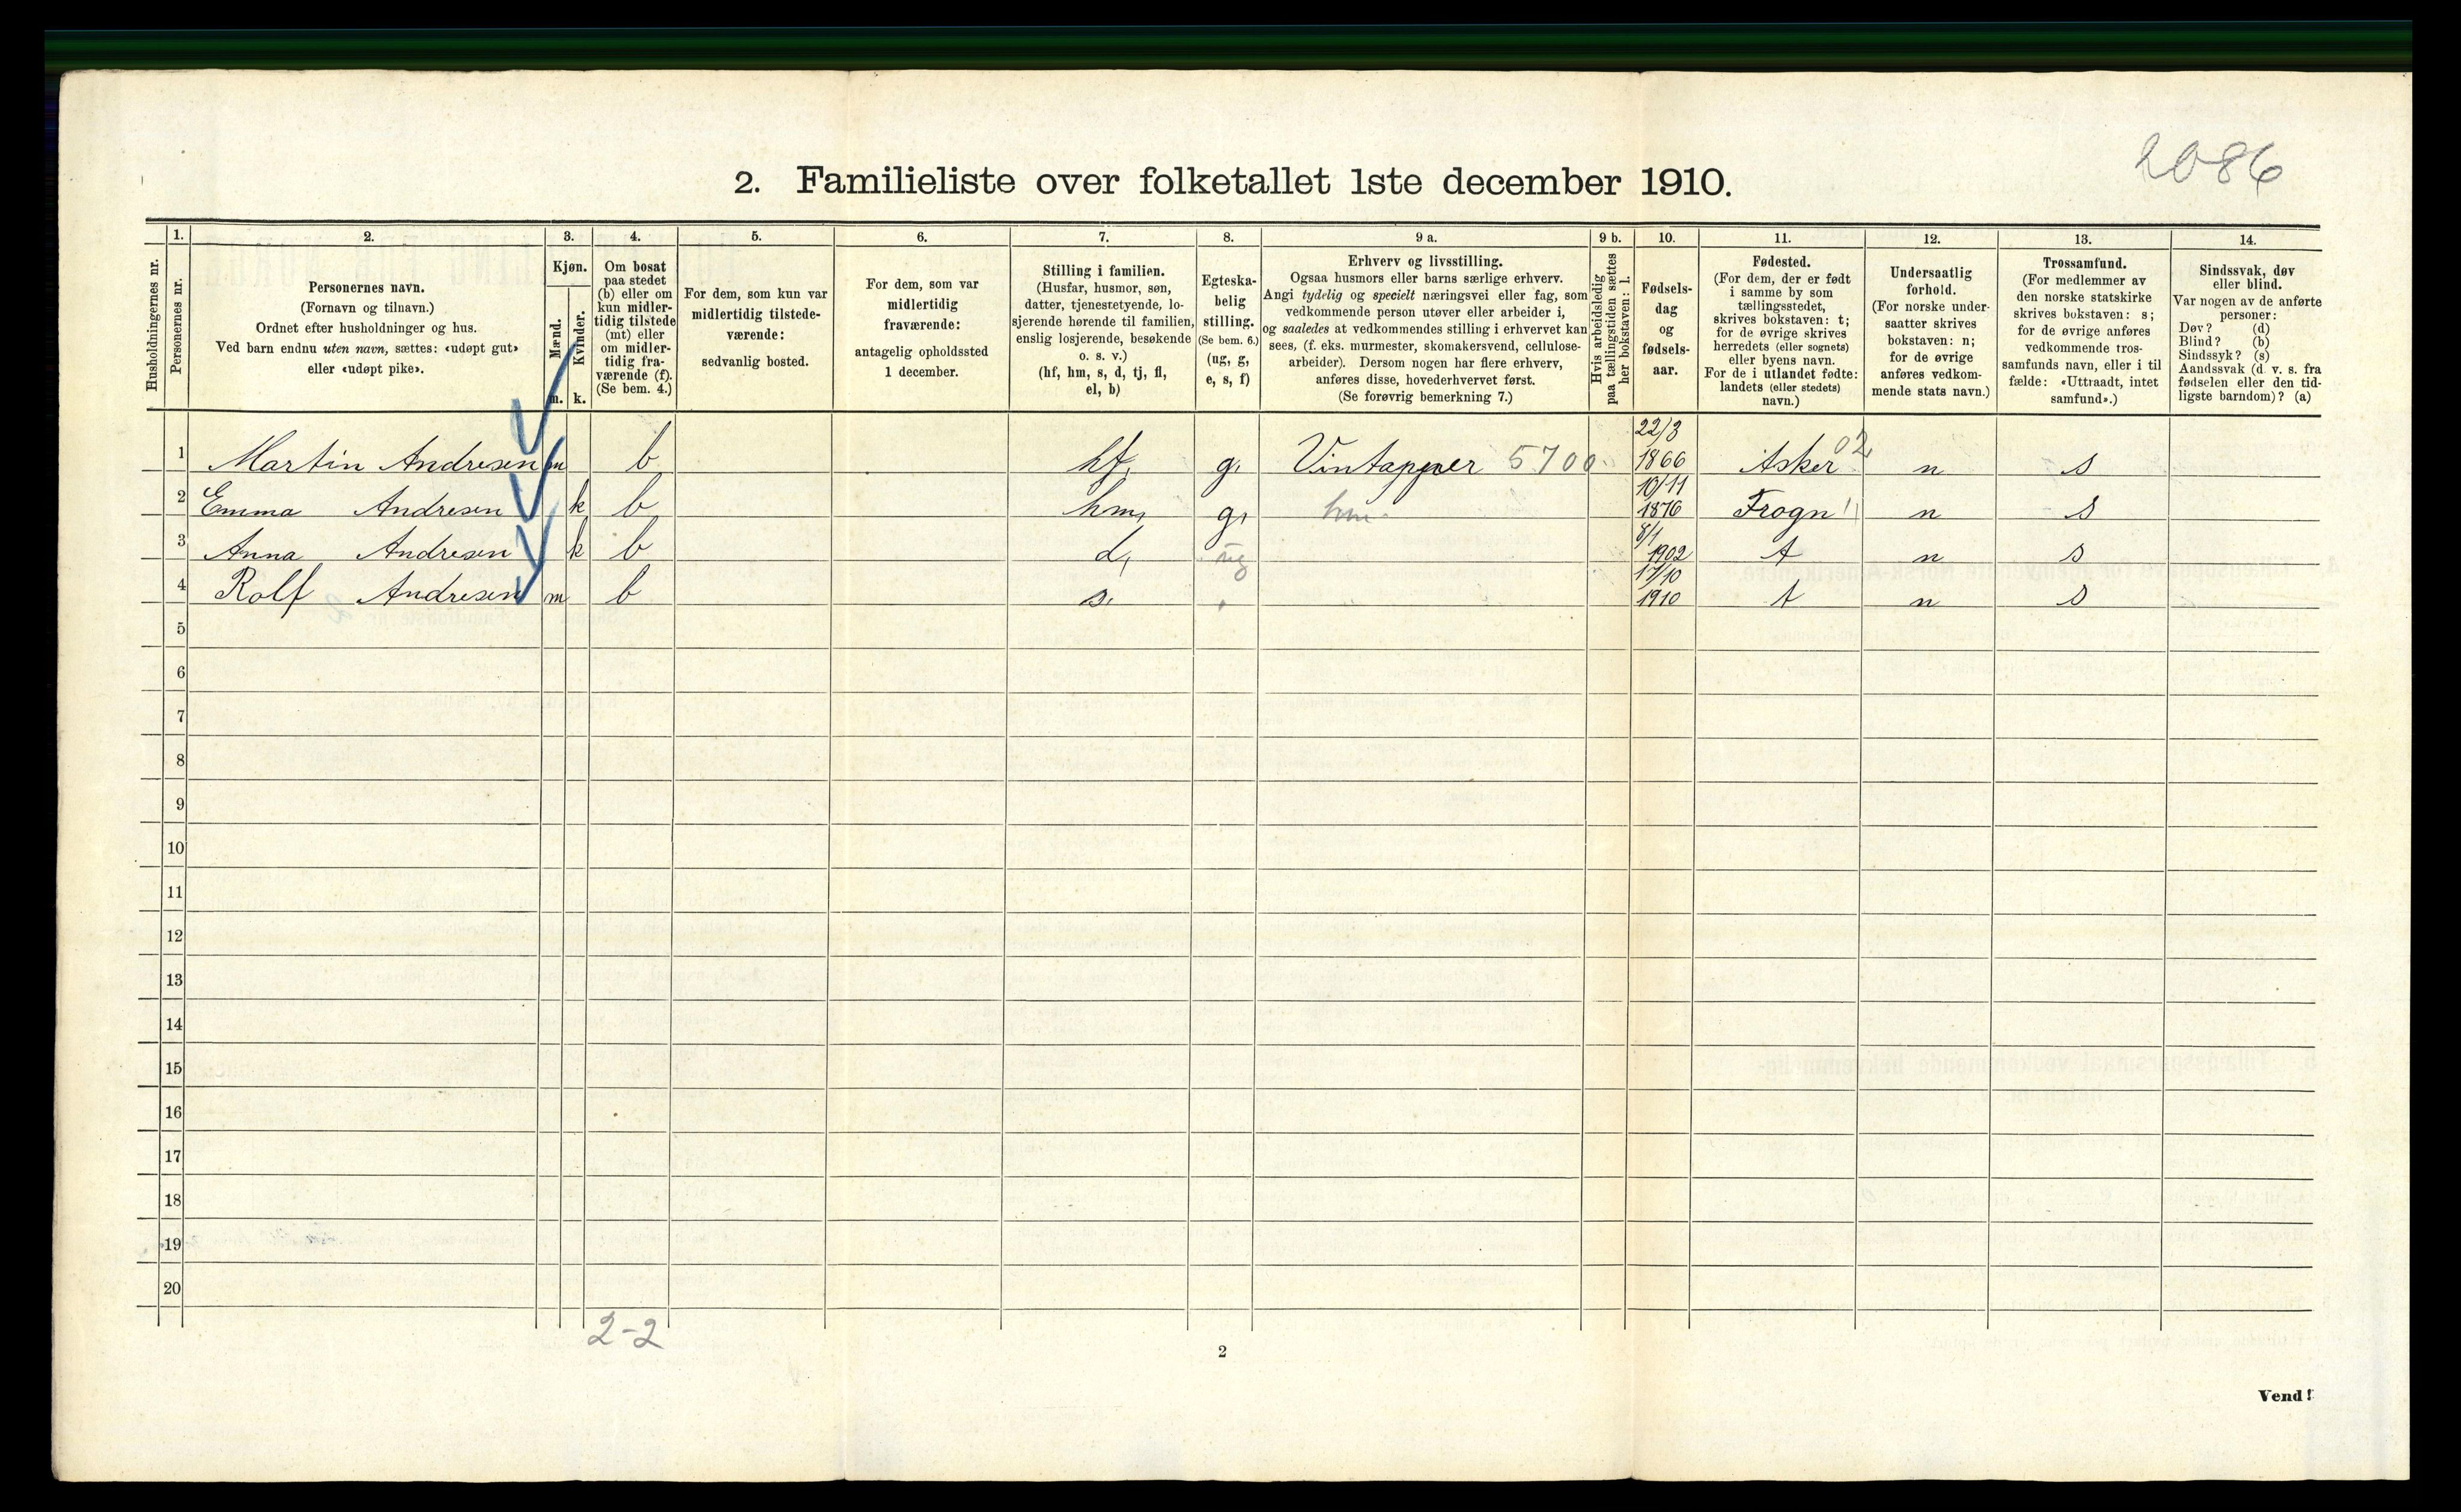 2086
2. Familieliste over folketallet 1ste december 1910.
Husholdningernes nr.
1. Personernes nr.
2. Personernes navn.
(Fornavn og tilnavn.)
Ordnet efter husholdninger og hus.
Ved barn endnu uten navn, sættes: «udøpt gut»
eller «udøpt pike».
3. Kjøn.
Mænd. m.
Kvinder. k.
4. Om bosat
paa stedet
(b) eller om
kun midler-
tidig tilstede
(mt) eller
om midler-
tidig fra-
værende (f).
(Se bem. 4.)
5. For dem, som kun var
midlertidig tilstede-
værende:
sedvanlig bosted.
6. For dem, som var
midlertidig
fraværende:
antagelig opholdssted
1 december.
7. Stilling i familien.
(Husfar, husmor, søn,
datter, tjenestetyende, lo-
sjerende hørende til familien,
enslig losjerende, besøkende
o. s. v.)
(hf, hm, s, d, tj, fl,
el, b)
8. Egteska-
belig
stilling.
(Se bem. 6.)
(ug, g,
e, s, f)
9 a. Erhverv og livsstilling.
Ogsaa husmors eller barns særlige erhverv.
Angi tydelig og specielt næringsvei eller fag, som
vedkommende person utøver eller arbeider i,
og saaledes at vedkommendes stilling i erhvervet kan
sees, (f. eks. murmester, skomakersvend, cellulose-
arbeider). Dersom nogen har flere erhverv,
anføres disse, hovederhvervet først.
(Se forøvrig bemerkning 7.)
9 b. Hvis arbeidsledig
paa tællingstiden sættes
her bokstaven: l.
10. Fødsels-
dag
og
fødsels-
aar.
11. Fødested.
(For dem, der er født
i samme by som
tællingsstedet,
skrives bokstaven: t;
for de øvrige skrives
herredets (eller sognets)
eller byens navn.
For de i utlandet fødte:
landets (eller stedets)
navn.)
12. Undersaatlig
forhold.
(For norske under-
saatter skrives
bokstaven: n;
for de øvrige
anføres vedkom-
mende stats navn.)
13. Trossamfund.
(For medlemmer av
den norske statskirke
skrives bokstaven: s;
for de øvrige anføres
vedkommende tros-
samfunds navn, eller i til
fælde: «Uttraadt, intet
samfund».)
14. Sindssvak, døv
eller blind.
Var nogen av de anførte
personer:
Døv? (d)
Blind? (b)
Sindssyk? (s)
Aandssvak (d. v. s. fra
fødselen eller den tid-
ligste barndom)? (a)
1 Martin Andresen m b hf, g, Vintapper 5700 22/3 1866 Asker 02 n s
2 Emma Andresen k b hm, g, hm 10/11 1876 Frogn 11 n s
3 Anna Andresen k b d, ug 8/1 1902 t n s
4 Rolf Andresen m b s, 17/10 1910 t n s
5
6
7
8
9
10
11
12
13
14
15
16
17
18
19
20
2-2
2
Vend!